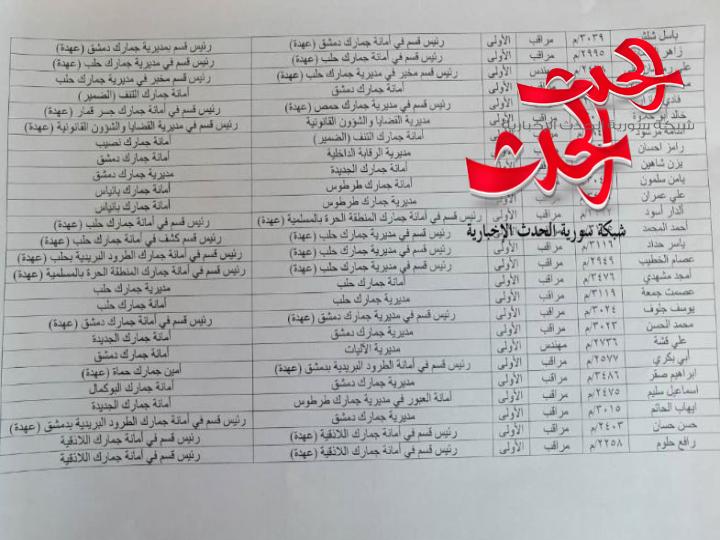 باسل شلش ٣٠٣٩/م مراقب الأولى رئيس قسم في أمانة جمارك دمشق (عهدة) رئيس قسم بمديرية جمارك دمشق (عهدة)
زاهر ٢٩٩٥/م مراقب الأولى رئيس قسم في أمانة جمارك حلب (عهدة) رئيس قسم في مديرية جمارك حلب (عهدة)
علي مهندس الأولى رئيس قسم مخبر في مديرية جمارك حلب (عهدة) رئيس قسم مخبر في مديرية جمارك حلب
الأولى أمانة جمارك دمشق أمانة جمارك التنف (الضمير)
فادي الأولى رئيس قسم في مديرية جمارك حمص (عهدة) رئيس قسم في أمانة جمارك جسر قمار (عهدة)
خالد أبو حلاوة الأولى مديرية القضايا والشؤون القانونية رئيس قسم في مديرية القضايا والشؤون القانونية (عهدة)
أسامة الأولى أمانة جمارك التنف (الضمير) أمانة جمارك نصيب
رامز احسان الأولى مديرية الرقابة الداخلية أمانة جمارك دمشق
يزن شاهين الأولى أمانة جمارك الجديدة مديرية جمارك دمشق
يامن سلمون الأولى أمانة جمارك طرطوس أمانة جمارك بانياس
علي عمران الأولى مديرية جمارك طرطوس أمانة جمارك بانياس
ألدار أسود الأولى رئيس قسم في أمانة جمارك المنطقة الحرة بالمسلمية (عهدة) رئيس قسم في أمانة جمارك حلب (عهدة)
أحمد المحمد الأولى رئيس قسم في مديرية جمارك حلب (عهدة) رئيس قسم كشف في أمانة جمارك حلب (عهدة)
ياسر حداد ٣١١٦/م مراقب الأولى رئيس قسم في مديرية جمارك حلب (عهدة) رئيس قسم في أمانة جمارك الطرود البريدية بحلب (عهدة)
عصام الخطيب ٢٩٤٩/م مراقب الأولى رئيس قسم في مديرية جمارك حلب (عهدة) رئيس قسم في أمانة جمارك المنطقة الحرة بالمسلمية (عهدة)
أمجد مشهدي ٣٤٧٦/م مراقب الأولى أمانة جمارك حلب مديرية جمارك حلب
عصمت جمعة ٣١١٩/م مراقب الأولى مديرية جمارك حلب أمانة جمارك حلب
يوسف جلوف ٣٠٢٤/م مراقب الأولى رئيس قسم في مديرية جمارك دمشق (عهدة) رئيس قسم في أمانة جمارك دمشق (عهدة)
محمد الحسن ٣٠٢٣/م مراقب الأولى مديرية جمارك دمشق أمانة جمارك الجديدة
علي قشة ٢٧٣٦/م مهندس الأولى مديرية الآليات أمانة جمارك دمشق
أبي بكري ٢٥٧٧/م مراقب الأولى رئيس قسم في أمانة الطرود البريدية بدمشق (عهدة) أمين جمارك حماة (عهدة)
ابراهيم صقر ٣٤٨٦/م مراقب الأولى مديرية جمارك دمشق أمانة جمارك البوكمال
اسماعيل سليم ٢٤٧٥/م مراقب الأولى أمانة العبور في مديرية جمارك طرطوس أمانة جمارك الجديدة
ايهاب الحاتم ٣٠١٥/م مراقب الأولى مديرية جمارك دمشق رئيس قسم في أمانة جمارك الطرود البريدية بدمشق (عهدة)
حسن حسان ٢٤٠٣/م مراقب الأولى رئيس قسم في أمانة جمارك اللاذقية (عهدة) رئيس قسم في أمانة جمارك اللاذقية
رافع حلوم ٢٢٥٨/م مراقب الأولى رئيس قسم في أمانة جمارك اللاذقية (عهدة) رئيس قسم في أمانة جمارك اللاذقية
الحدث
الحدث
شبكة سورية الحدث الإخبارية
شبكة سورية الحدث الإخبارية